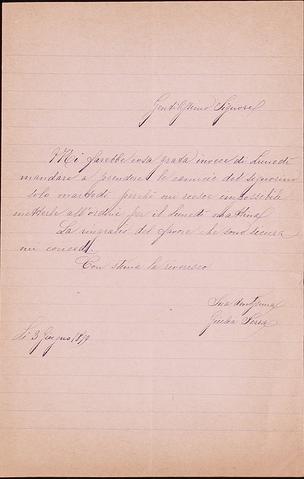 Gentilissimo Signore
Mi farebbe cosa grata invece di Lunedì
mandare a prendere le camicie del signorino
solo martedì perchè mi riesce impossibile
metterle all'ordine per il lunedì mattina.
La ringrazio del favore che sono sicura
mi concede.
Con stima la riverisco
Sua
Giulia
li 3 Giugno